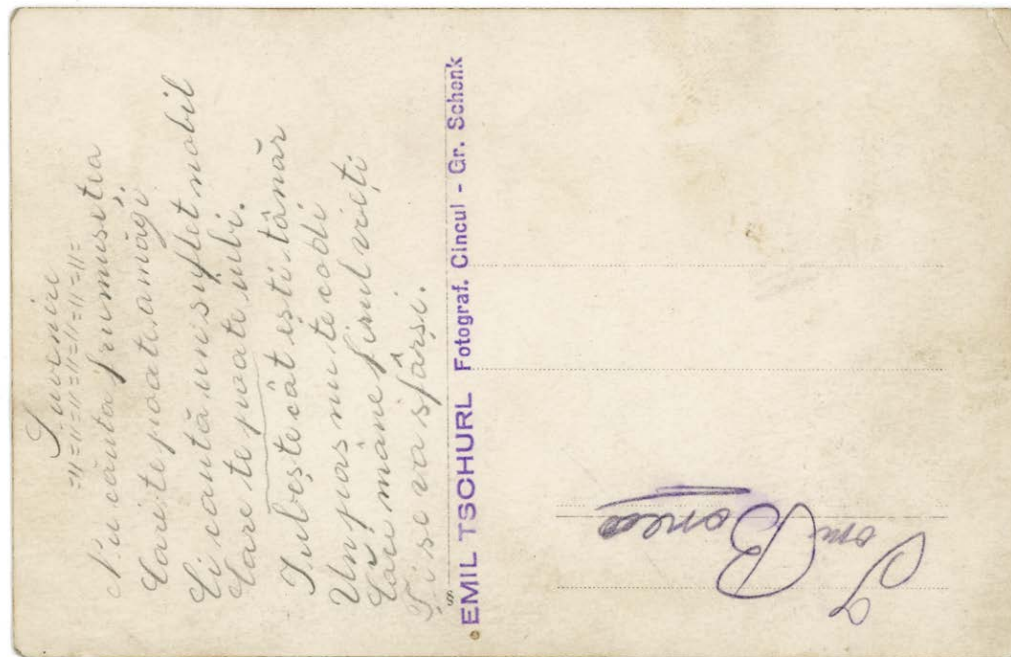 Suvenire
=11=11=11=11=11=11=
Nu căuta frumusețea
Care te poate amăgi
Ci caută un suflet nobil
Care te poate iubi.
Iubește cât ești tânăr
Un pas nu te codi
Căci mâne firul vieți
Ți se va sfârși.
EMIL TSCHURL Fotograf. Cincul - Gr. Schenk
Ion Boneа